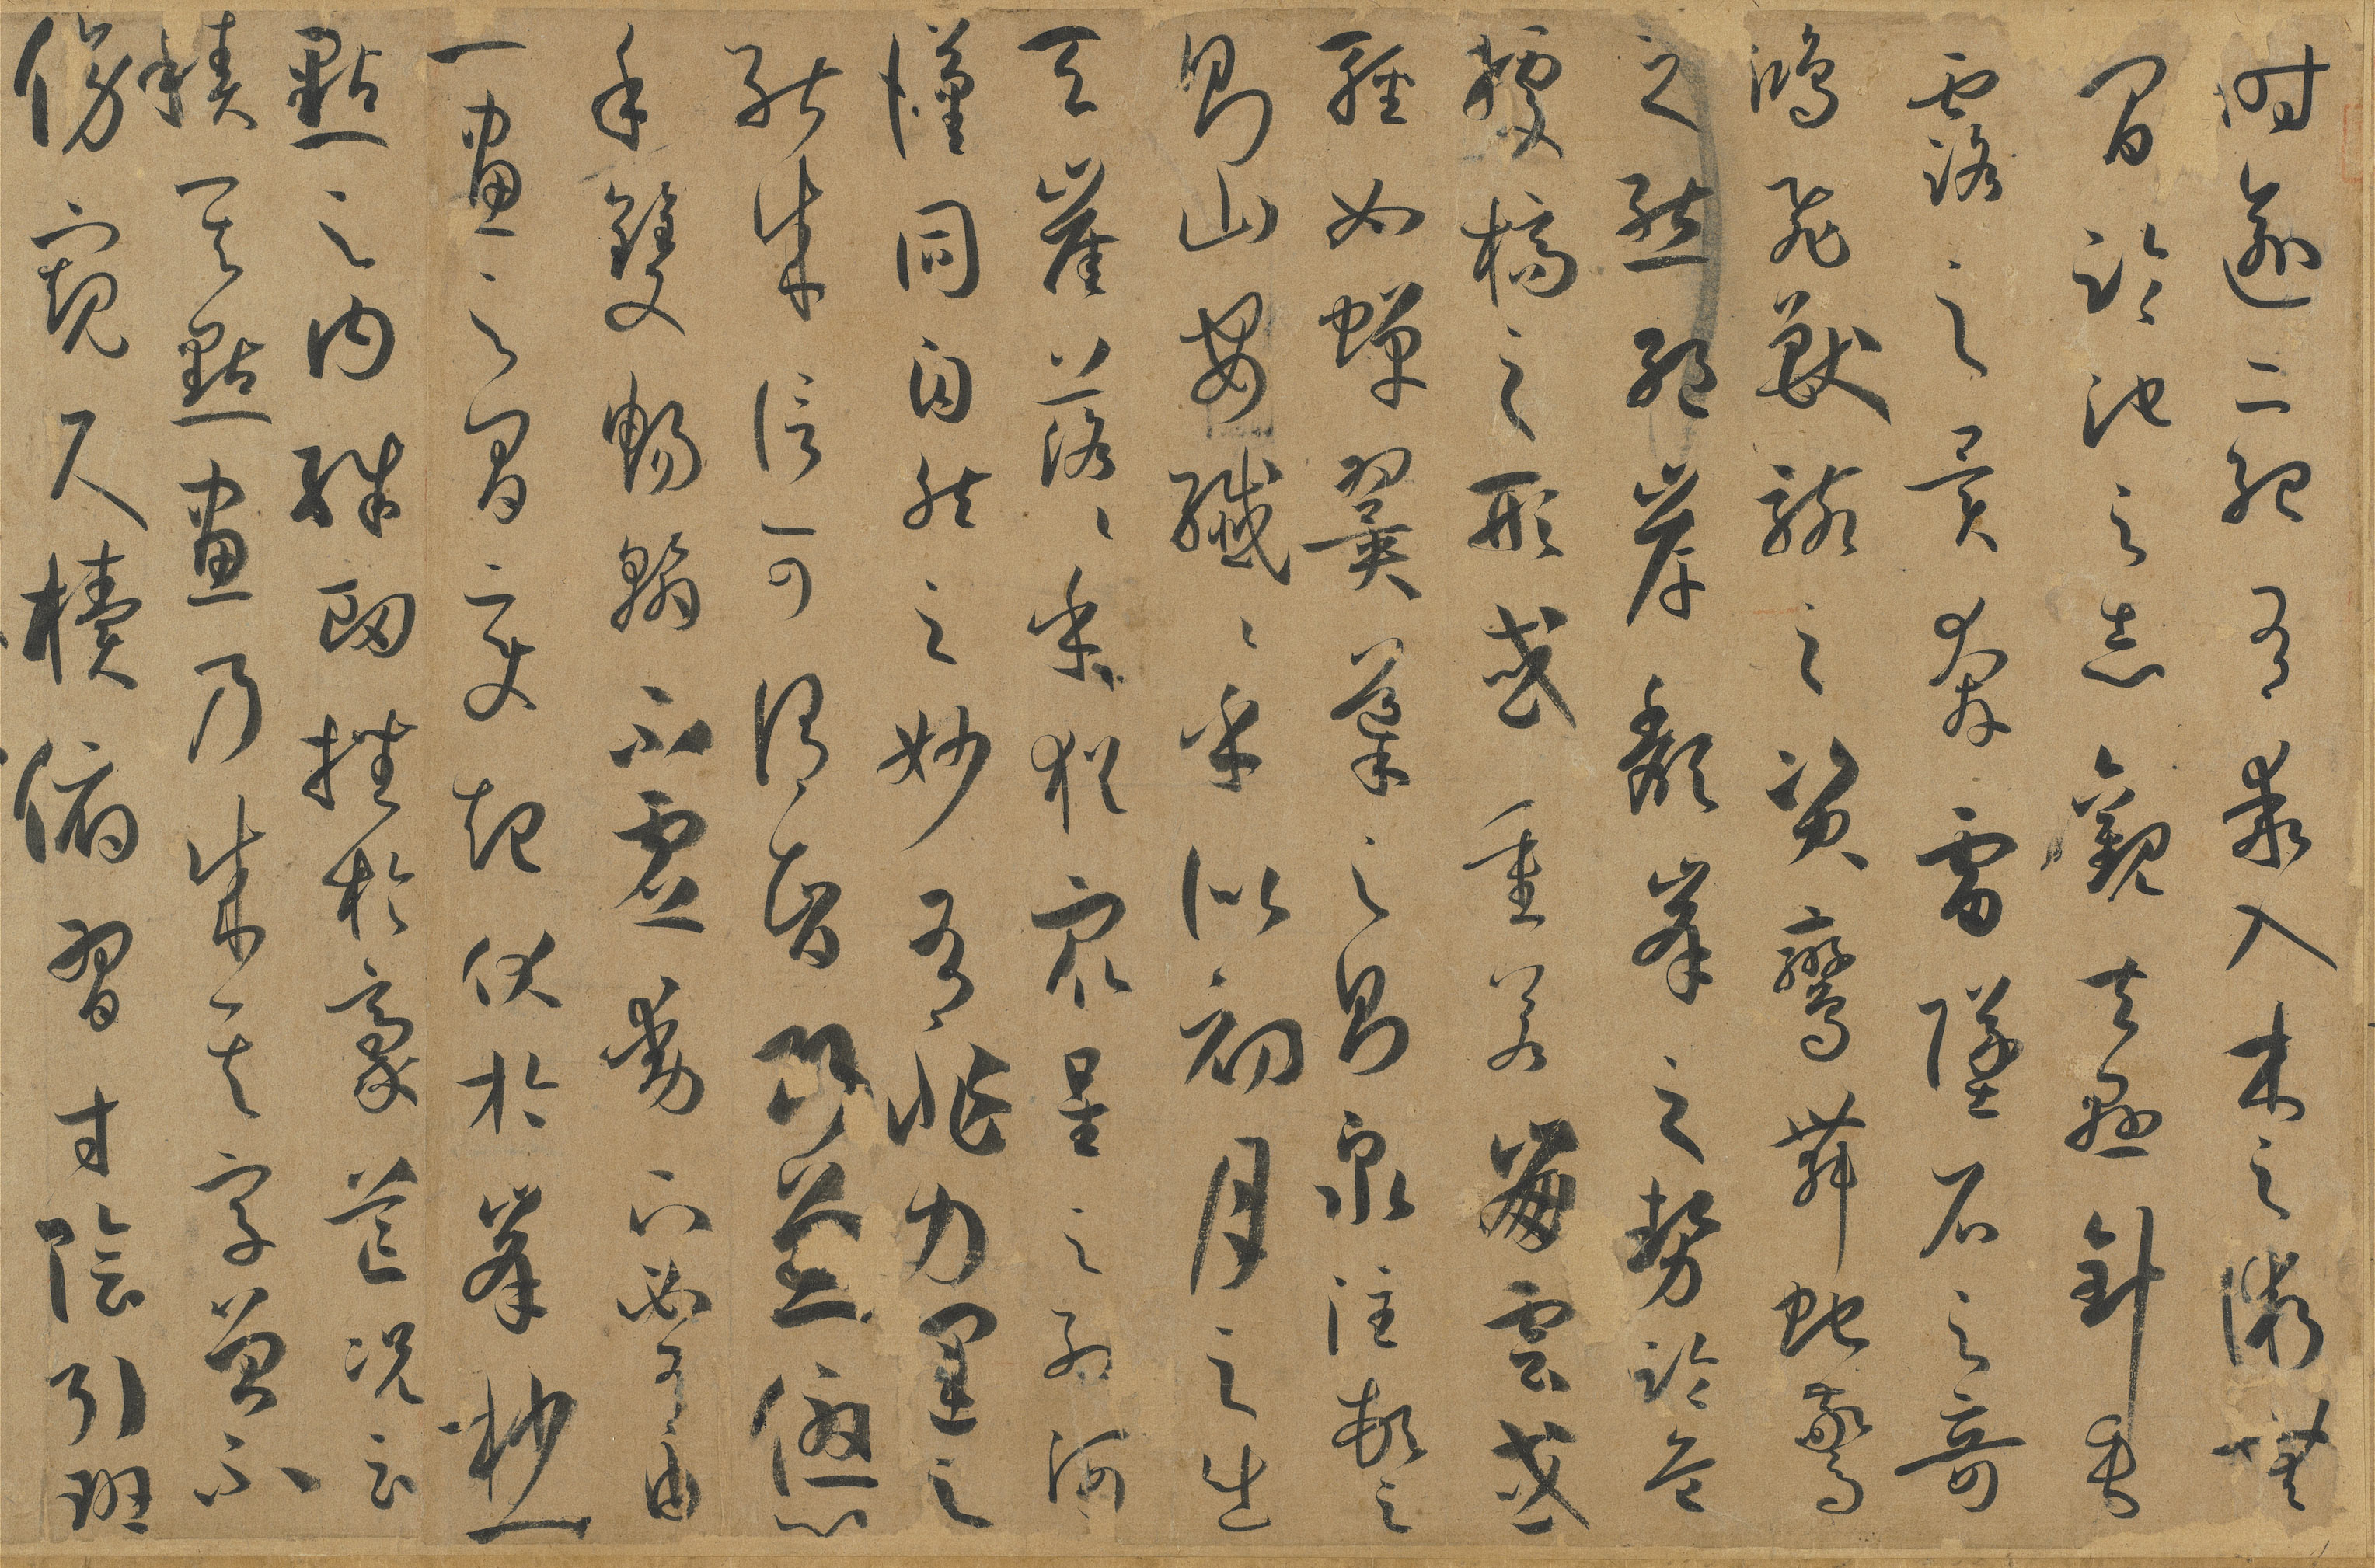 時逾二紀有乖入木之術無
間臨池之志觀夫懸針垂
露之異奔雷墜石之奇
鴻飛獸駭之資鸞舞蛇驚
之態絕岸頹峯之勢臨危
據槁之形或重若崩雲或
輕如蟬翼導之則泉注頓之
則山安纖〻乎似初月之出
天崖落〻乎猶眾星之列河
漢同自然之妙有非力運之
能成信可謂智巧兼優心
手雙暢翰不虛動下必有由
一畫之間變起伏於峯杪一
點之內殊衄挫於豪芒況云
積其點畫乃成其字曾不
傍窺尺櫝俯習寸陰引班